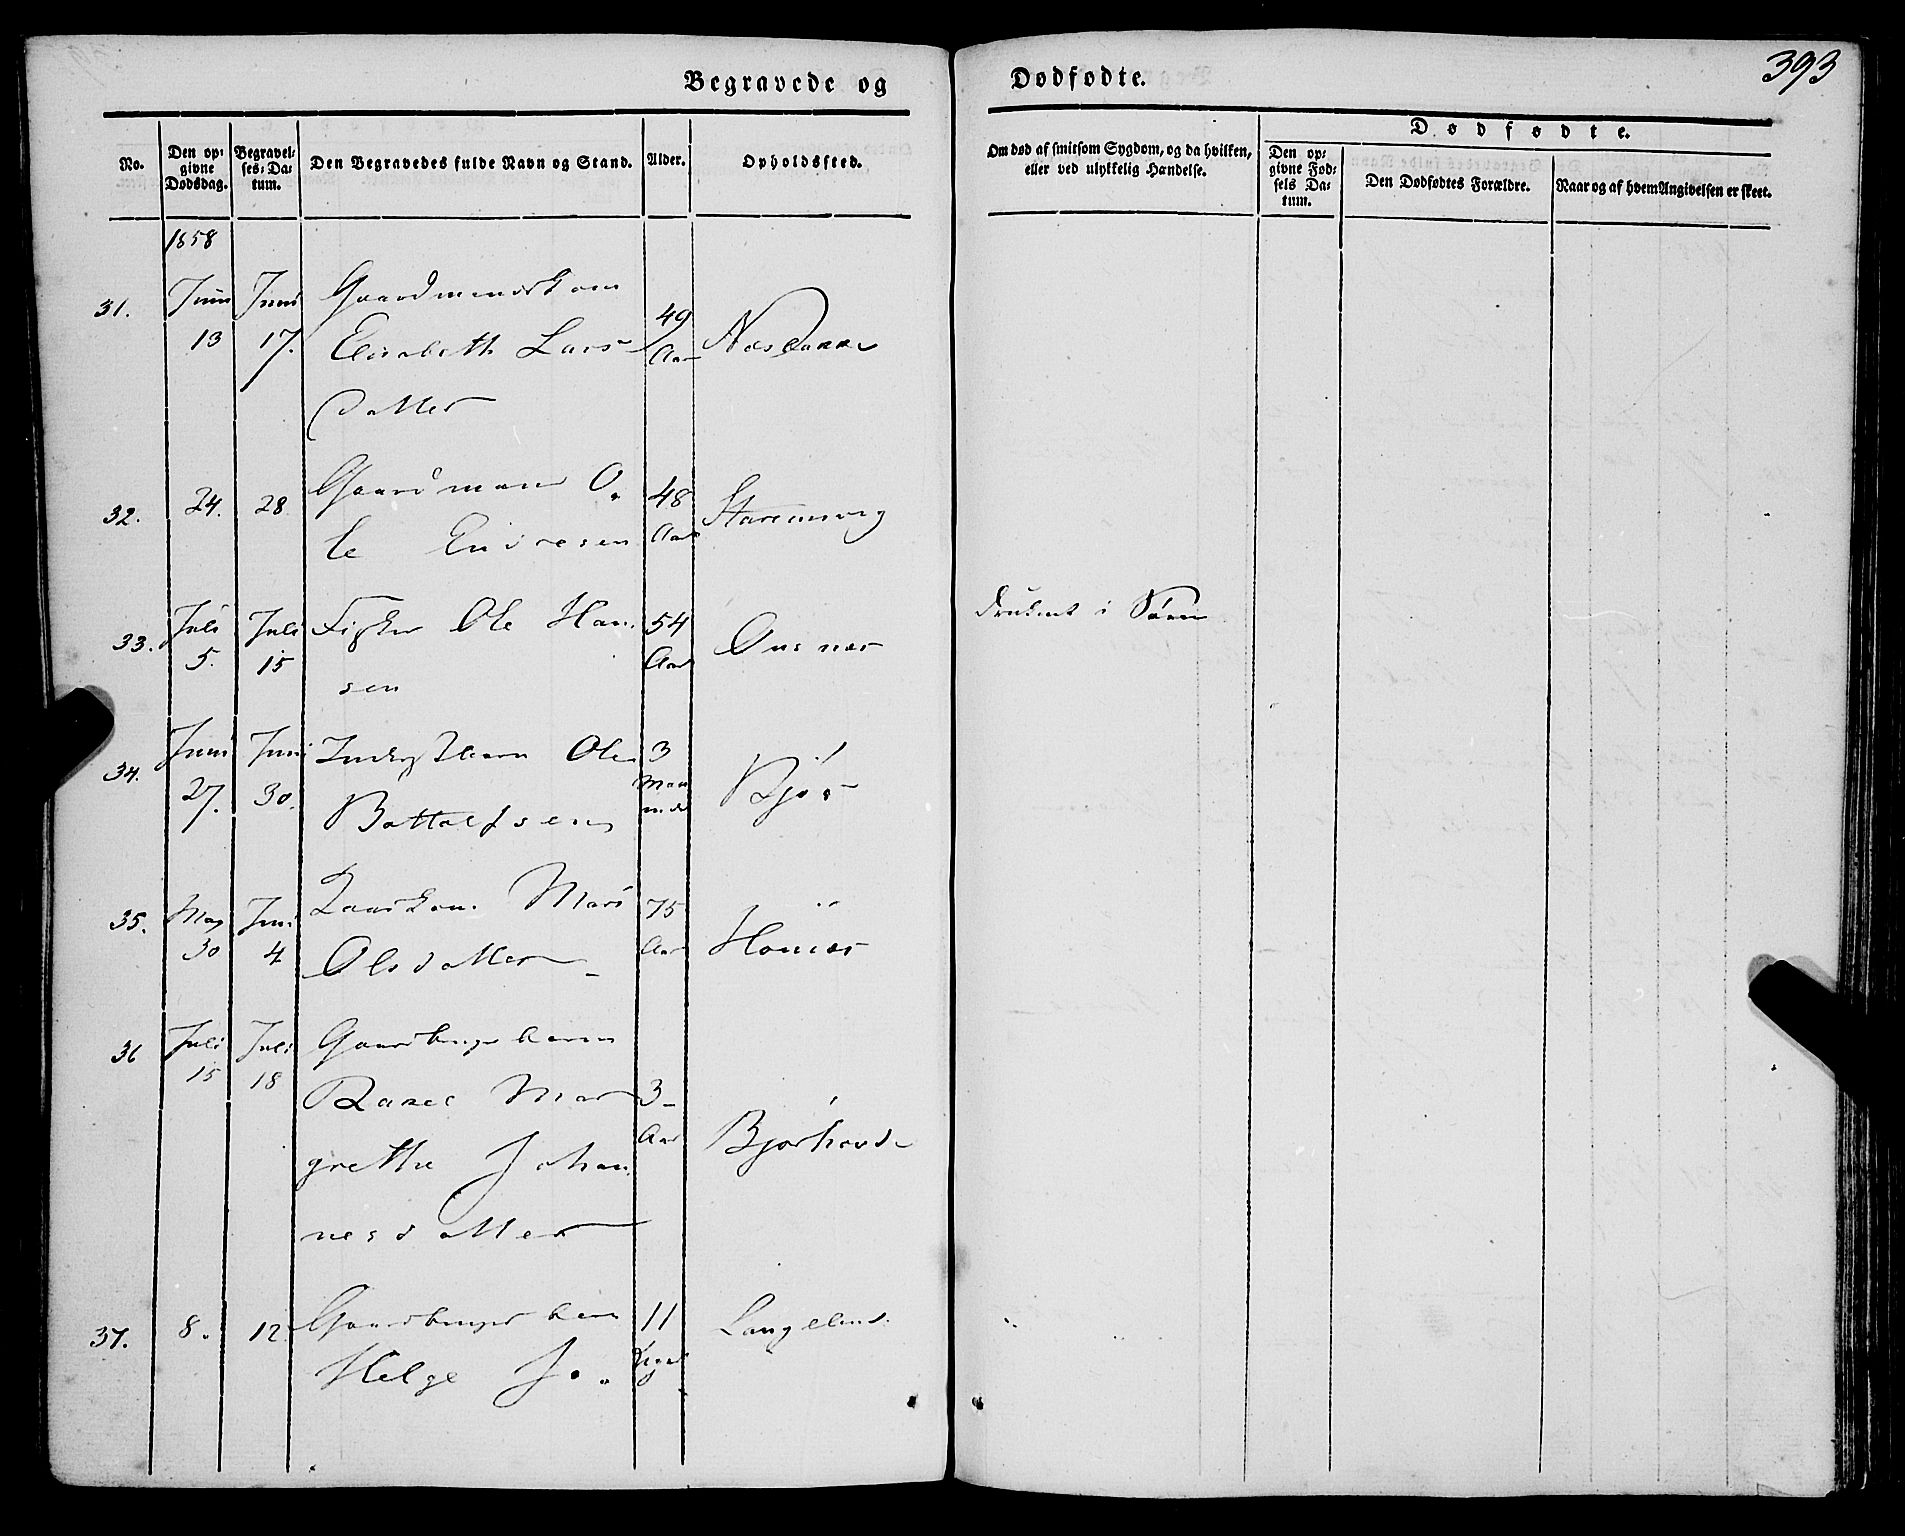 Begravede og Dødfødte.
393
No.
Den op-
givne
Dødsdag.
Begravel-
ses-Da-
tum.
Den Begravedes fulde Navn og Stand.
Alder.
Opholdssted.
Om død af smitsom Sygdom, og da hvilken,
eller ved ulykkelig Hændelse.
Dødfødte.
Den op-
givne Fød-
sels Da-
tum.
Den Dødfødtes Forældre.
Naar og af hvem Angivelsen er skeet.
1858
31.
Juni
13
Juni
17.
Gaardmandskone
Elisabeth Lars
datter
49
Aar
32.
24.
28
Gaardmand O-
le Endresen
48
Aar
33.
Juli
5.
Juli
15
Fisker Ole Han-
sen
54
Aar
Onsnæs
druknet i Søen
34.
Juni
27.
Juni
30.
Ole
Bottolfsen
3
Maa
neder
35.
May
30
Juni
4
Mari
Olsdatter
75
Aar
36
Juli
15
Juli
18
Gaardbrugerbarn
Mar
grethe Johan-
nesdatter
3
Aar
Bjørhovde
37.
8.
12
Gaardbrugerbarn
Helge Jo-
11
Dage
Langeland